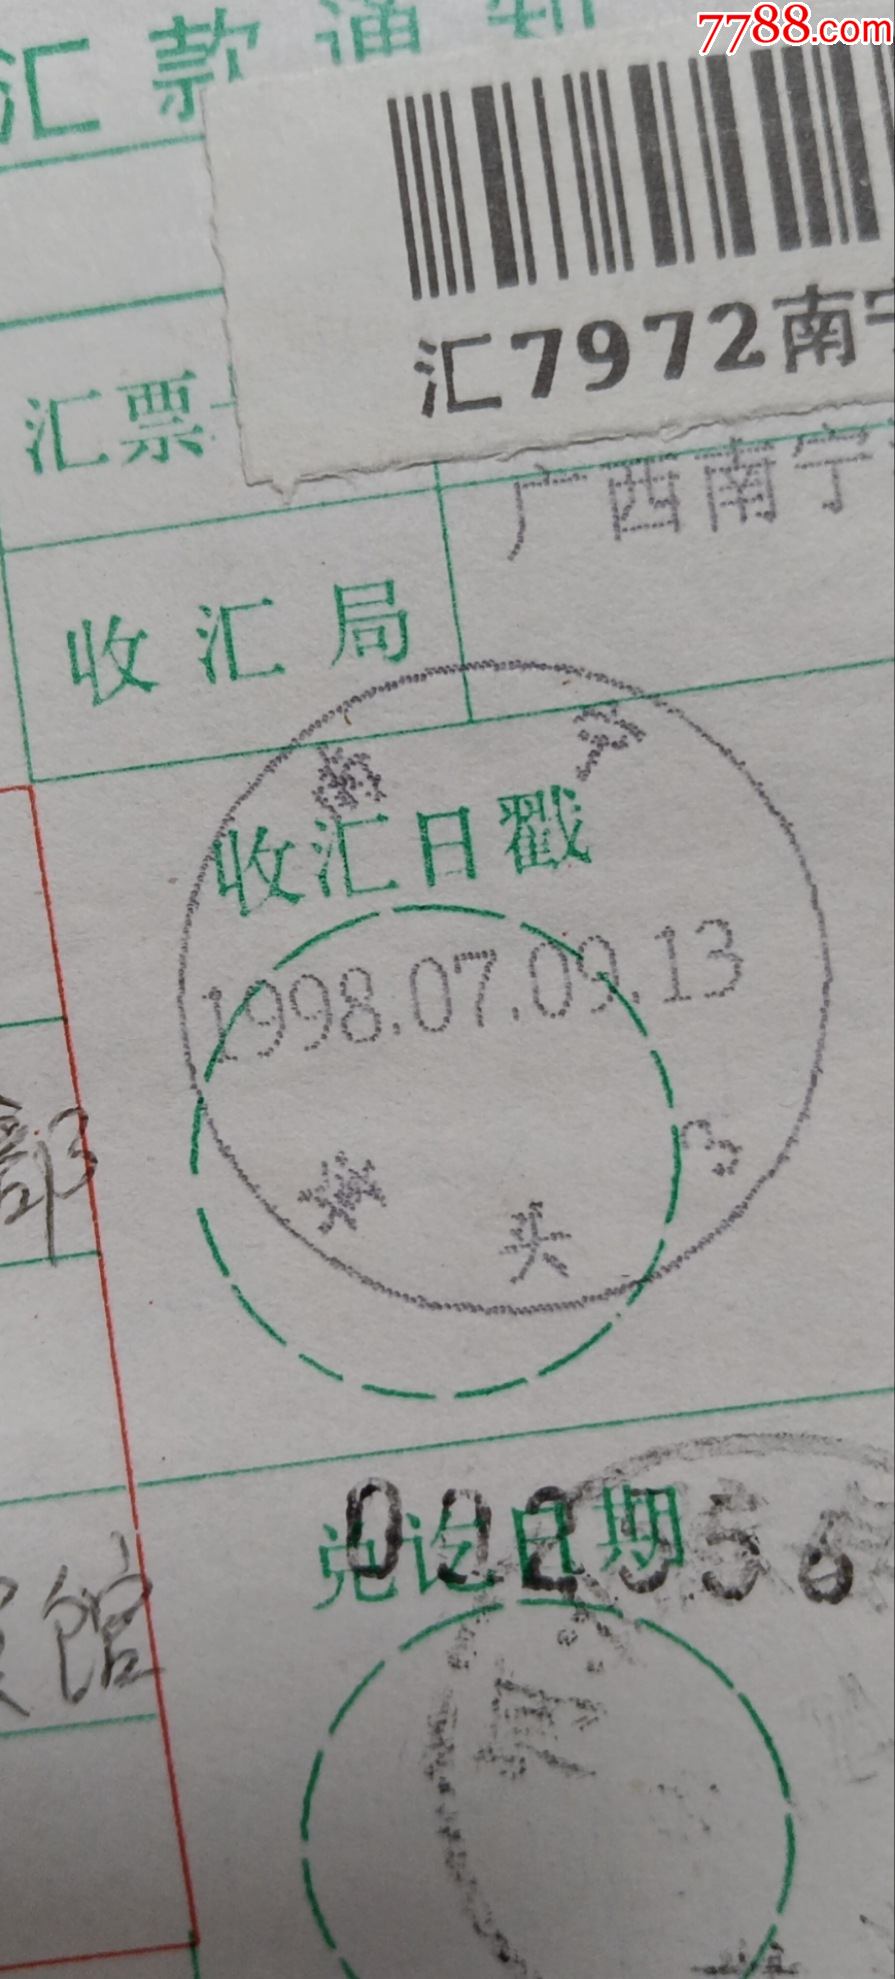 7788.com
汇款通知
汇7972南宁
汇票
广西南宁
收汇局
南宁
收汇日戳
1998.07.09.13
头
部
兑讫日期
002956
馆